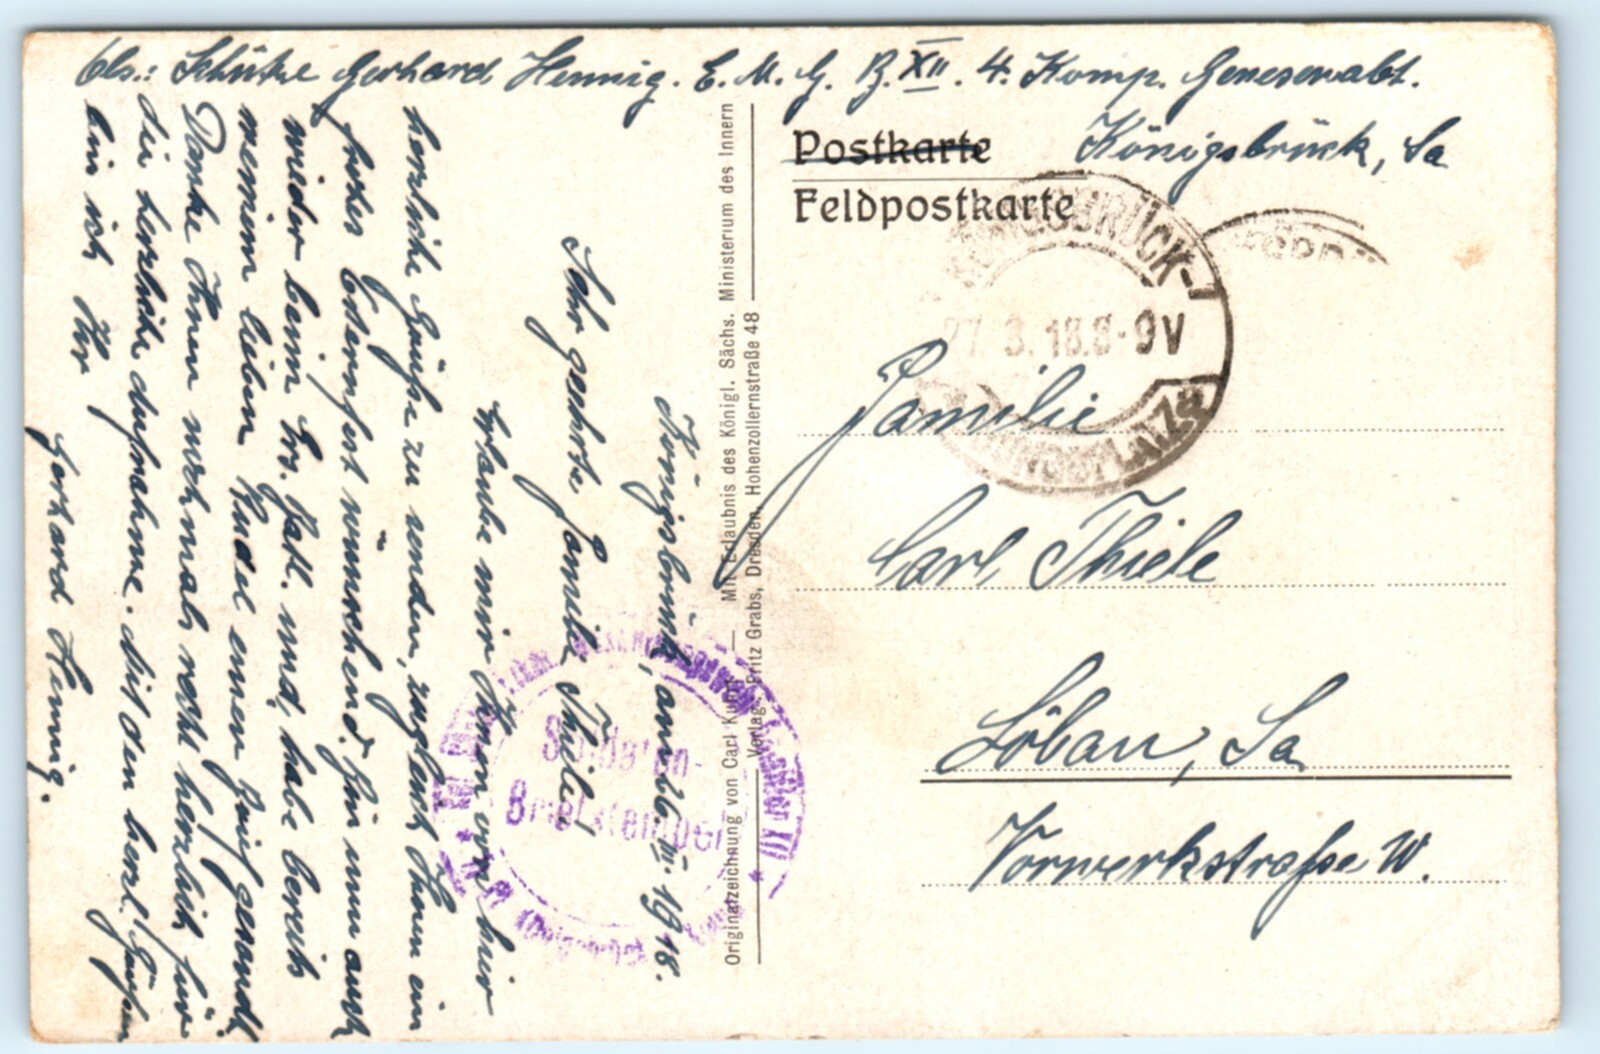 Abs.: Schütze Gerhard Hennig. E. M. G. B. XII. 4. Komp. Genesenabt.
Königsbrück, Sa
Postkarte
Feldpostkarte
KÖNIGSBRÜCK-
27.3.18.8-9V
PLATZ
Familie
Carl Thiele
Löbau, Sa
Vorwerkstraße W.
Mit Erlaubnis des Königl. Sächs. Ministerium des Innern
Originalzeichnung von Carl
Verlag: Fritz Grabs, Dresden, Hohenzollernstraße 48
Soldaten-
Briefstempel
Königsbrück, am 26. III. 1918.
Sehr geehrte Familie Thiele!
Erlaube mir Ihnen von hier
herzliche Grüße zu senden, zugleich Ihnen ein
frohes Osterfest wünschend. Bin nun auch
wieder beim Ers. Batl. und habe bereits
meinem lieben Rudel einen Brief gesandt
Danke Ihnen nochmals recht herzlich für
die herzliche Aufnahme. Mit den herzl. Grüßen
bin ich Ihr
Gerhard Hennig.